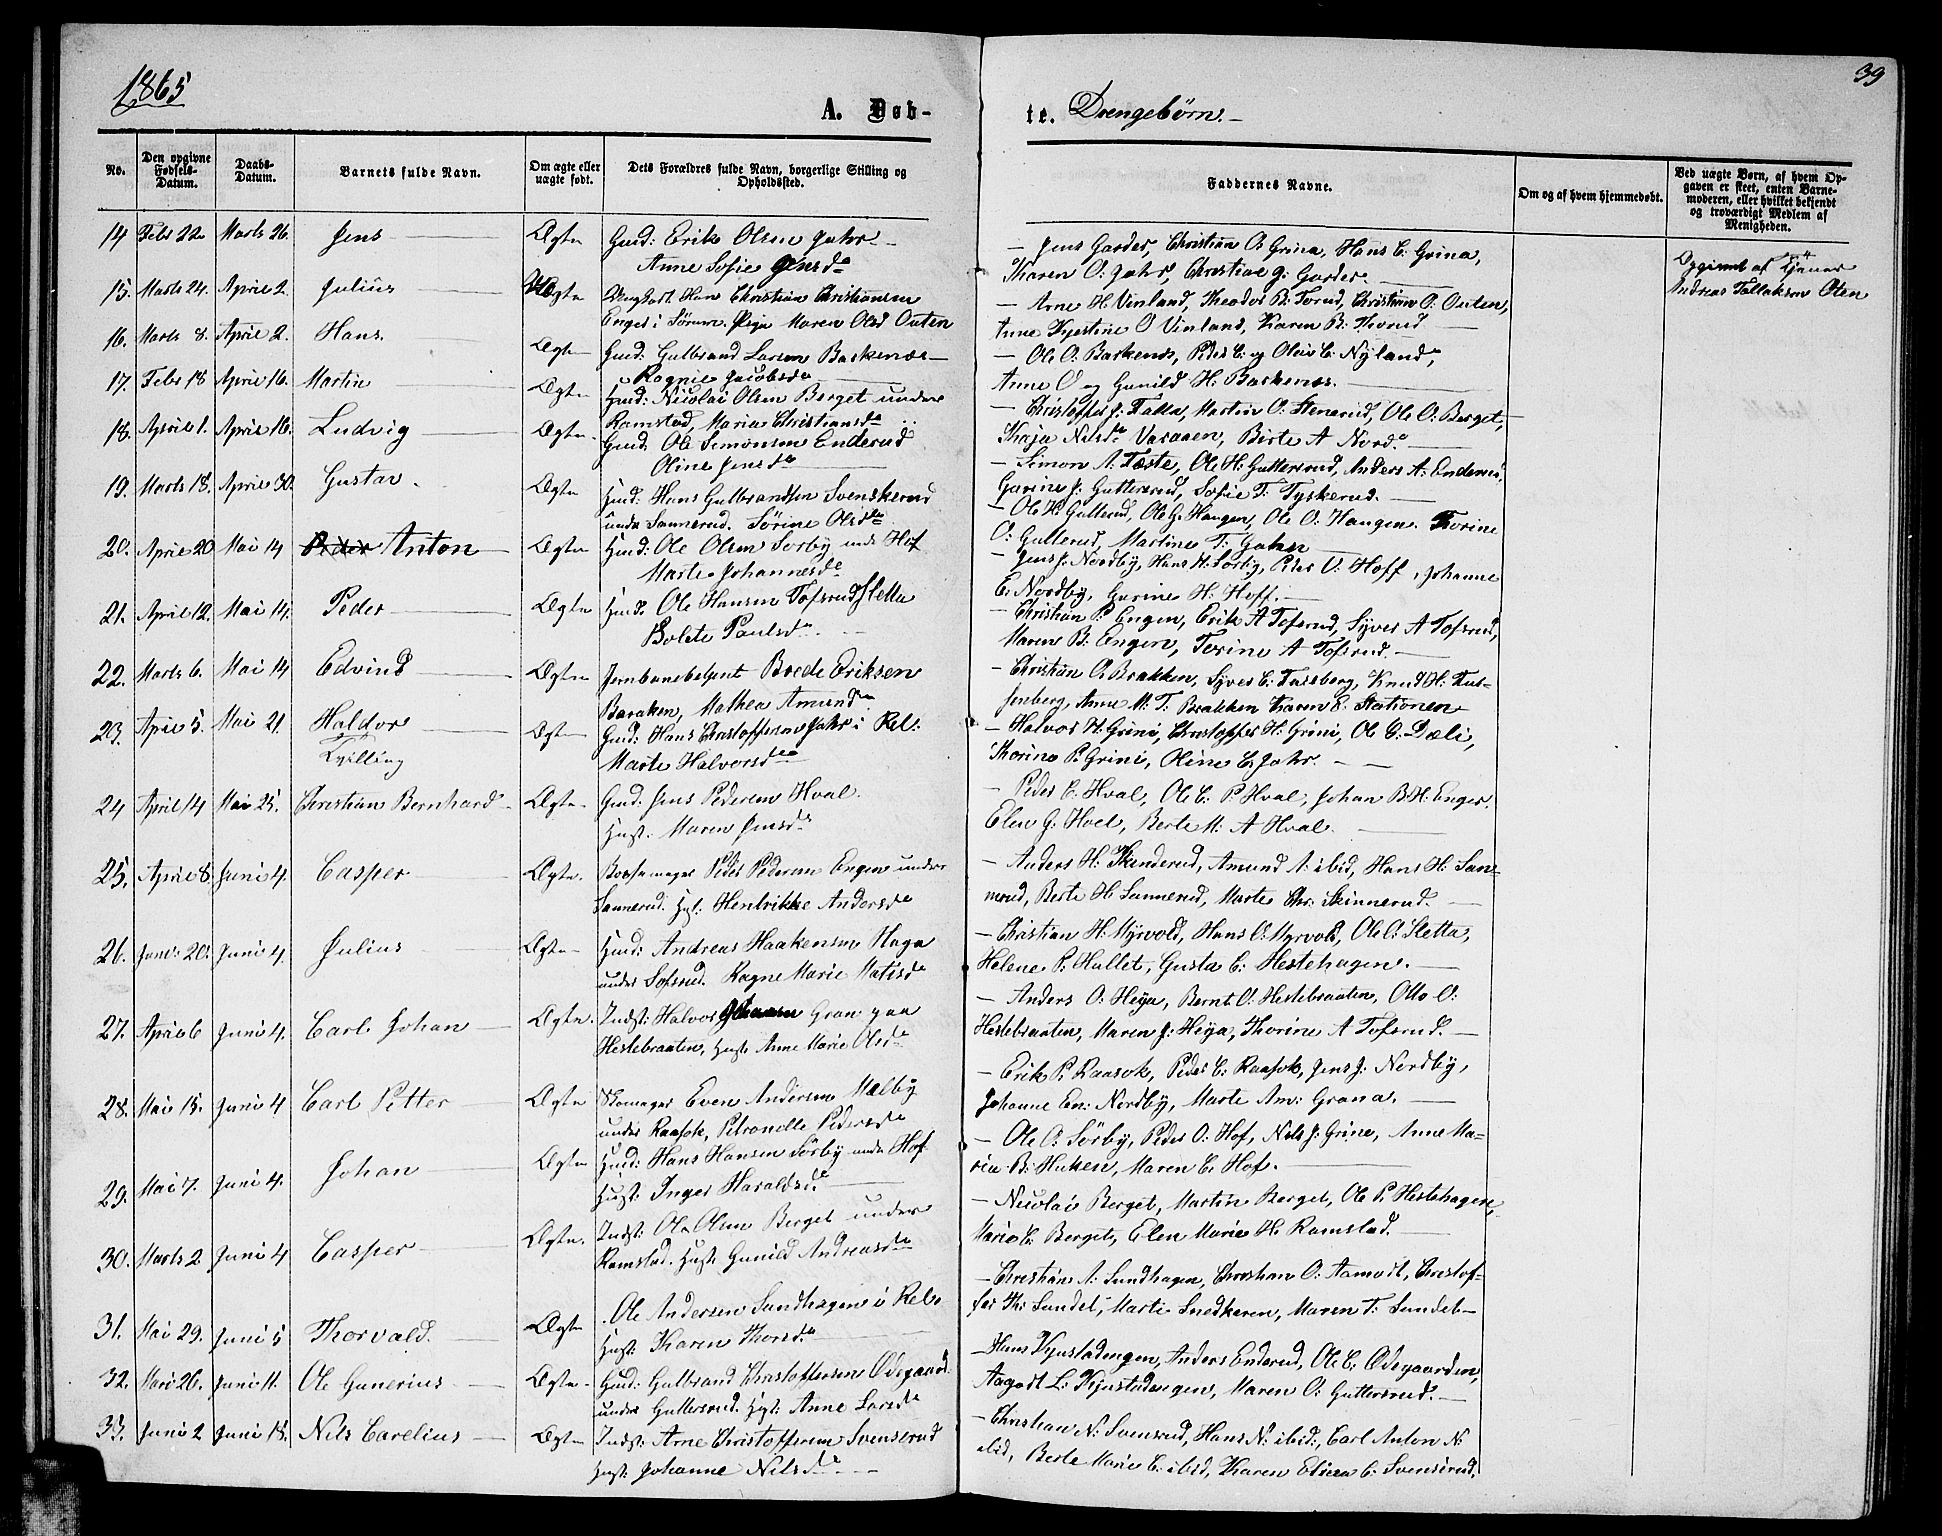 1865
39
A. Døb-
te. Drengebørn.-
No.
Den opgivne Fødsels-Datum.
Daabs-Datum.
Barnets fulde Navn.
Om ægte eller uægte født.
Dets Forældres fulde Navn, borgerlige Stilling og Opholdssted.
Faddernes Navne.
Om og af hvem hjemmedøbt.
Ved uægte Børn, af hvem Opgaven er skeet, enten Barnemoderen, eller hvilket bekjendt og troværdigt Medlem af Menigheden.
14 Febr 22 Marts 26. Jens Ægte Gmd: Erik Olsen Jahr
Anne Sofie Jensdr
- Jens Garder, Christian O. Grina, Hans C. Grina,
Karen O: Jahr, Christine J: Garder.
15. Marts 24. April 2. Julius Uægte Ungkarl Hans Christian Christiansen
Enger i Sørum. Pige Maren Olsd Outen
- Arne H. Vinland, Theodor B. Torud, Christian O: Outen,
Anne Kjestine O Vinland, Karen B. Thorud
Opgivet af Tjener
Andreas Tollaksen Oten
16. Marts 8. April 2. Hans. Ægte Gmd: Gulbrand Larsen Baskenæs
Rognie Jacobsdr
- Ole O. Baskenæs, Peder C. og Oleiv C. Nyland,
Anne O og Gunild H. Baskenæs.
17. Febr 18 April 16. Martin Ægte Hmd: Nicolai Olsen Berget under
Ramstad, Maria Christiansdr
- Christoffer J. Falla, Martin O. Stenerud, Ole O. Berget,
Kaja Nilsdr Varaaen, Birte A Nord.
18. April 1. April 16. Ludvig Ægte. Gmd. Ole Simonsen Enderud
Oline Jensdr
- Simon A. Tæste, Ole H: Guttersrud, Anders A: Enderud,
Garine J: Guttersrud, Sofie T: Tyskerud.
19. Marts 18. April 30. Gustav. Ægte Hmd: Hans Gulbrandsen Svenskerud
under Sannerud. Sørine Olsdr
- Ole H. Gullerud, Ole G. Haugen, Ole O. Haugen. Thorine
O: Gullerud, Martine T: Jahr
20. April 20 Mai 14 Peder Anton Ægte Hmd: Ole Olsen Sørby under Hof
Marte Johannesdr
- Jens J. Nordby, Hans H. Sørby, Peder O: Hoff, Johanne
E. Nordby, Garine H. Hoff.
21. April 12. Mai 14. Peder Ægte Hmd. Ole Hansen Tofsrudsletta
Bolete Paulsdr.
- Christian P. Engen, Erik A Tofsrud, Syver A Tofsrud,
Maren B: Engen, Torine A Tofsrud.
22. Marts 6. Mai 14 Edvind Ægte Jernbanebetjent Brede Eriksen
Baraken, Mathea Amundr
- Christian O. Brakken, Syver C. Fulsberg, Knud H. Ful-
senberg, Anne M. T. Brakken Karen E. Stationen
23. April 5. Mai 21. Haldor
Tvilling Ægte Gmd: Hans Christoffersen Jahr i Rel:
Marte Halvorsdr
- Halvor H. Grini, Christoffer H. Grini, Ole C. Dæli,
Thorine P. Grini, Oline C. Jahr.
24 April 14 Mai 25. Christian Bernhard Ægte Gmd: Jens Pedersen Hval.
Hust: Maren Jensdr
- Peder C. Hval, Ole C. P. Hval, Johan B. H. Enger.
Elen G. Hvel, Berte M: A Hval.
25. April 8 Juni 4. Casper Ægte. Børsemager Peder Pedersen Engen under
Sannerud. Hst. Hendrikke Andersdr
- Anders H. Skinderud, Amund A. ibid, Hans H. San-
nerud, Berte H. Sannerud, Marte Chr. Skinnerud.
26. Jani: 20. Juni 4. Julius Ægte Hmd: Andreas Haakensen Haga
under Tofsrud. Ragne Marie Matisdr
- Christian H. Myrvold, Hans O. Myrvold, Ole O. Sletta,
Helene P. Hullet, Gusta C. Hestehagen.
27. April 6 Juni 4. Carl Johan Ægte. Indst: Halvor Johansen Gran paa
Hestebraaten, Hust. Anne Marie Olsdr
- Anders O. Heija, Bernt O. Hestebraaten, Otto O.
Hestebraaten, Maren J. Heija, Thorine A Tofsrud.
28. Mai 15. Juni 4 Carl Petter Ægte Skomager Even Andersen Mælby
under Raasok, Petronelle Pedersdr
- Erik P. Raasok, Peder C. Raasok, Jens J. Nordby,
Johanne En: Nordby, Marte Am: Grana.
29. Mai 7. Juni 4. Johan Ægte Hmd: Hans Hansen Sørby under Hof.
Hust: Inger Haraldsd.
- Ole O. Sörby, Peder O. Hof, Nils J. Grine, Anne Ma-
rie B. Huken, Maren C. Hof.
30. Marts 2 Juni 4 Casper Ægte. Indst: Ole Olsen Berget under
Ramstad. Hust. Gunild Andreasdr
- Nicolai Berget, Martin Berget, Ole P. Hestehagen,
Marie C. Berget, Elen Marie H. Ramstad.
31. Mai 29. Juni 5 Thorvald. Ægte Ole Andersen Sundhagen i Rel.
Hust: Karen Thorsd.
- Christian A. Sundhagen, Christian O. Aamodt, Christof-
fer Th: Sundet, Marti Snedkeren, Maren T. Sundet
32. Mai 26. Juni 11. Ole Gunerius Ægte Gmd: Gulbrand Christoffersen Ødegaard
under Guttersrud. Hst: Anne Larsdr
- Hans Kjustadengen, Anders Enderud, Ole C. Ødegaarden,
Aagodt L: Kjustadengen, Maren O. Guttersrud.
33. Juni 2 Juni 18. Nils Carelius Ægte Indst: Arne Christoffersen Svenserud
Hust: Johanne Nilsdr
- Christian N. Svensrud, Hans N. ibid:, Carl Anton N.
ibid, Berte Marie C. ibid, Karen Elisea C. Svenserud,